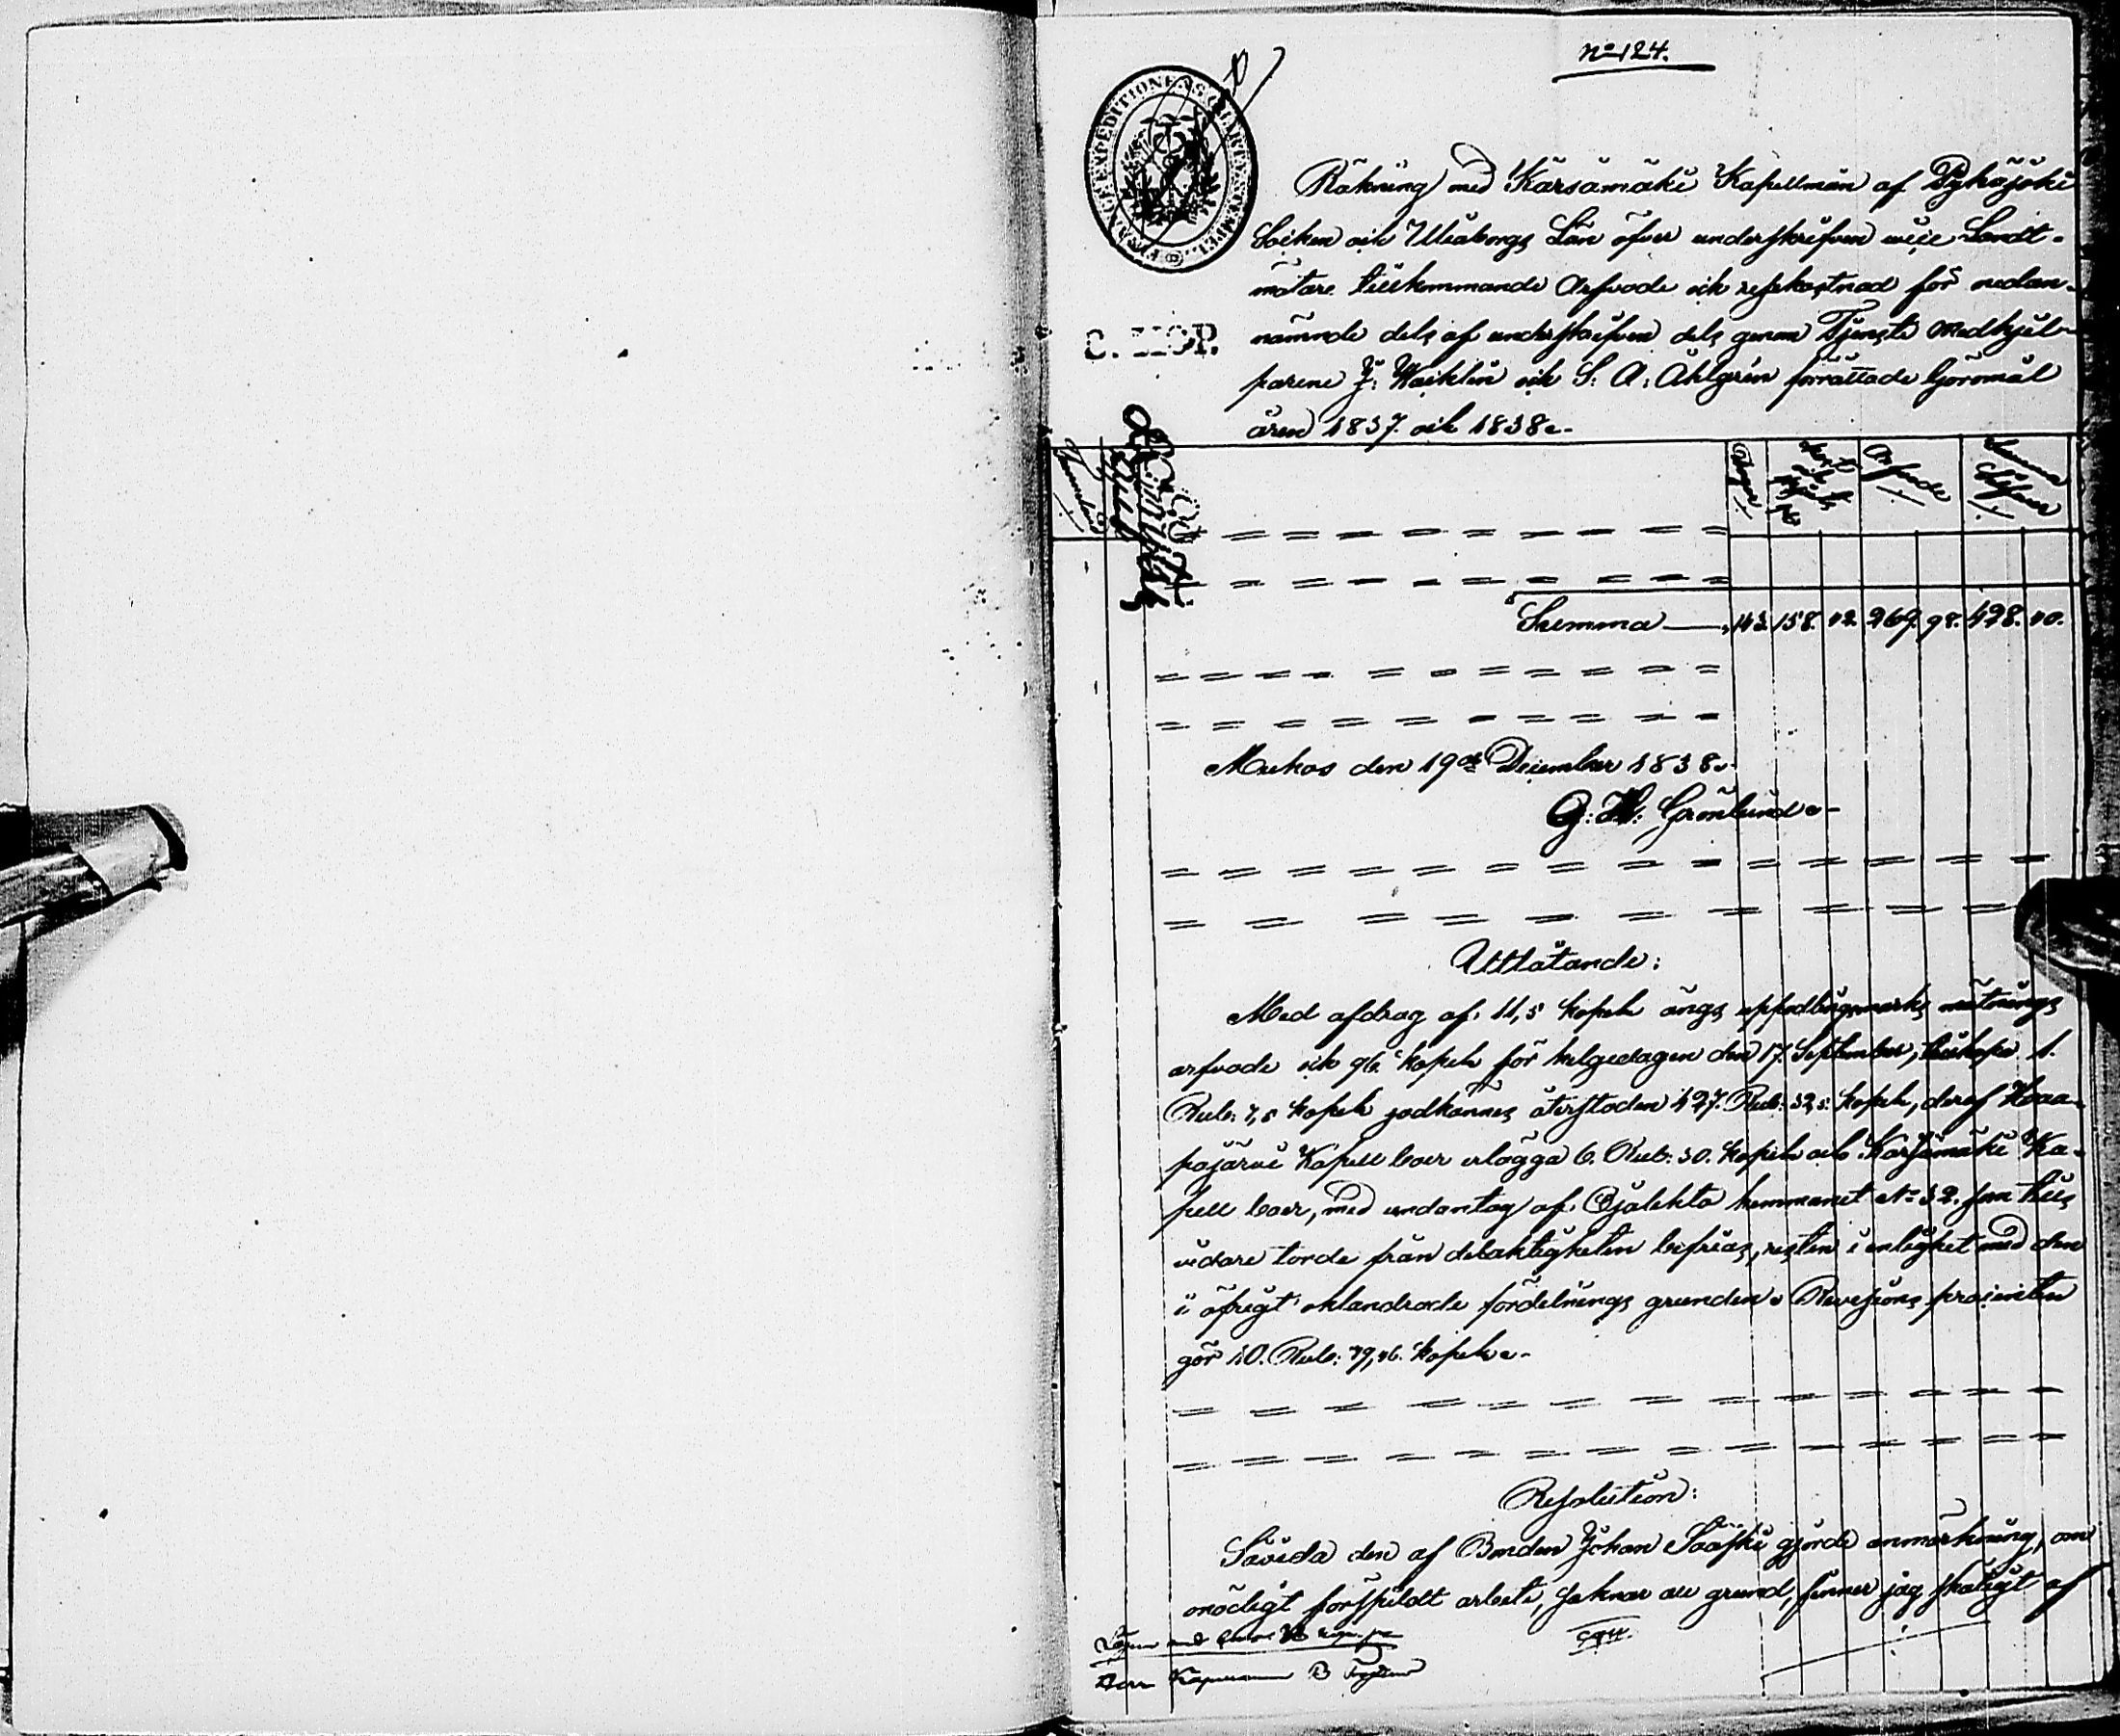 No 124.
Räkning med Kärsämäki Kapellmän af Pyhäjoki
Socken och Uleåborgs Län öfver underskrifven vice Landt-
mätare tillkommande Arfvode och resekostnad för nedan-
nämnde dels af underskrifven dels genom Tjenste Medhjel-
parene J: Wacklin och S: A: Åhlgrén förrättade Göromål
åren 1837. och 1838.-
Dagar
Arfvode
Summa
Summa — 143. 158. 02. 269. 98. 428. 00.
Muhos den 19de December 1838.
G: W: Grönlund.-
Utlåtande:
Med afdrag af 11,5 kopek ängs uppodlingsmarks mätnings
arfvode och 96. kopek för helgedagen den 17. September, tillhopa 1.
Rub: 7,5 kopek godkännes återstoden 427. Rub: 32,5 kopek, deraf Haa-
pajärvi Kapell boer erlägga 6. Rub: 30. kopek och Kärsämäki Ka-
pell boer, med undantag af Ojalehto hemmanet No 32. som tills
vidare torde från delaktigheten befrias, resten i enlighet med den
i öfrigt oklandrade fördelnings grunden. Revisions procenten
gör 10. Rub: 79,46. kopek.-
Resolution:
Såvida den af Bonden Johan Sääski gjorde anmärkning, om
onödigt förspildt arbete, saknar all grund, finner jag skäligt af